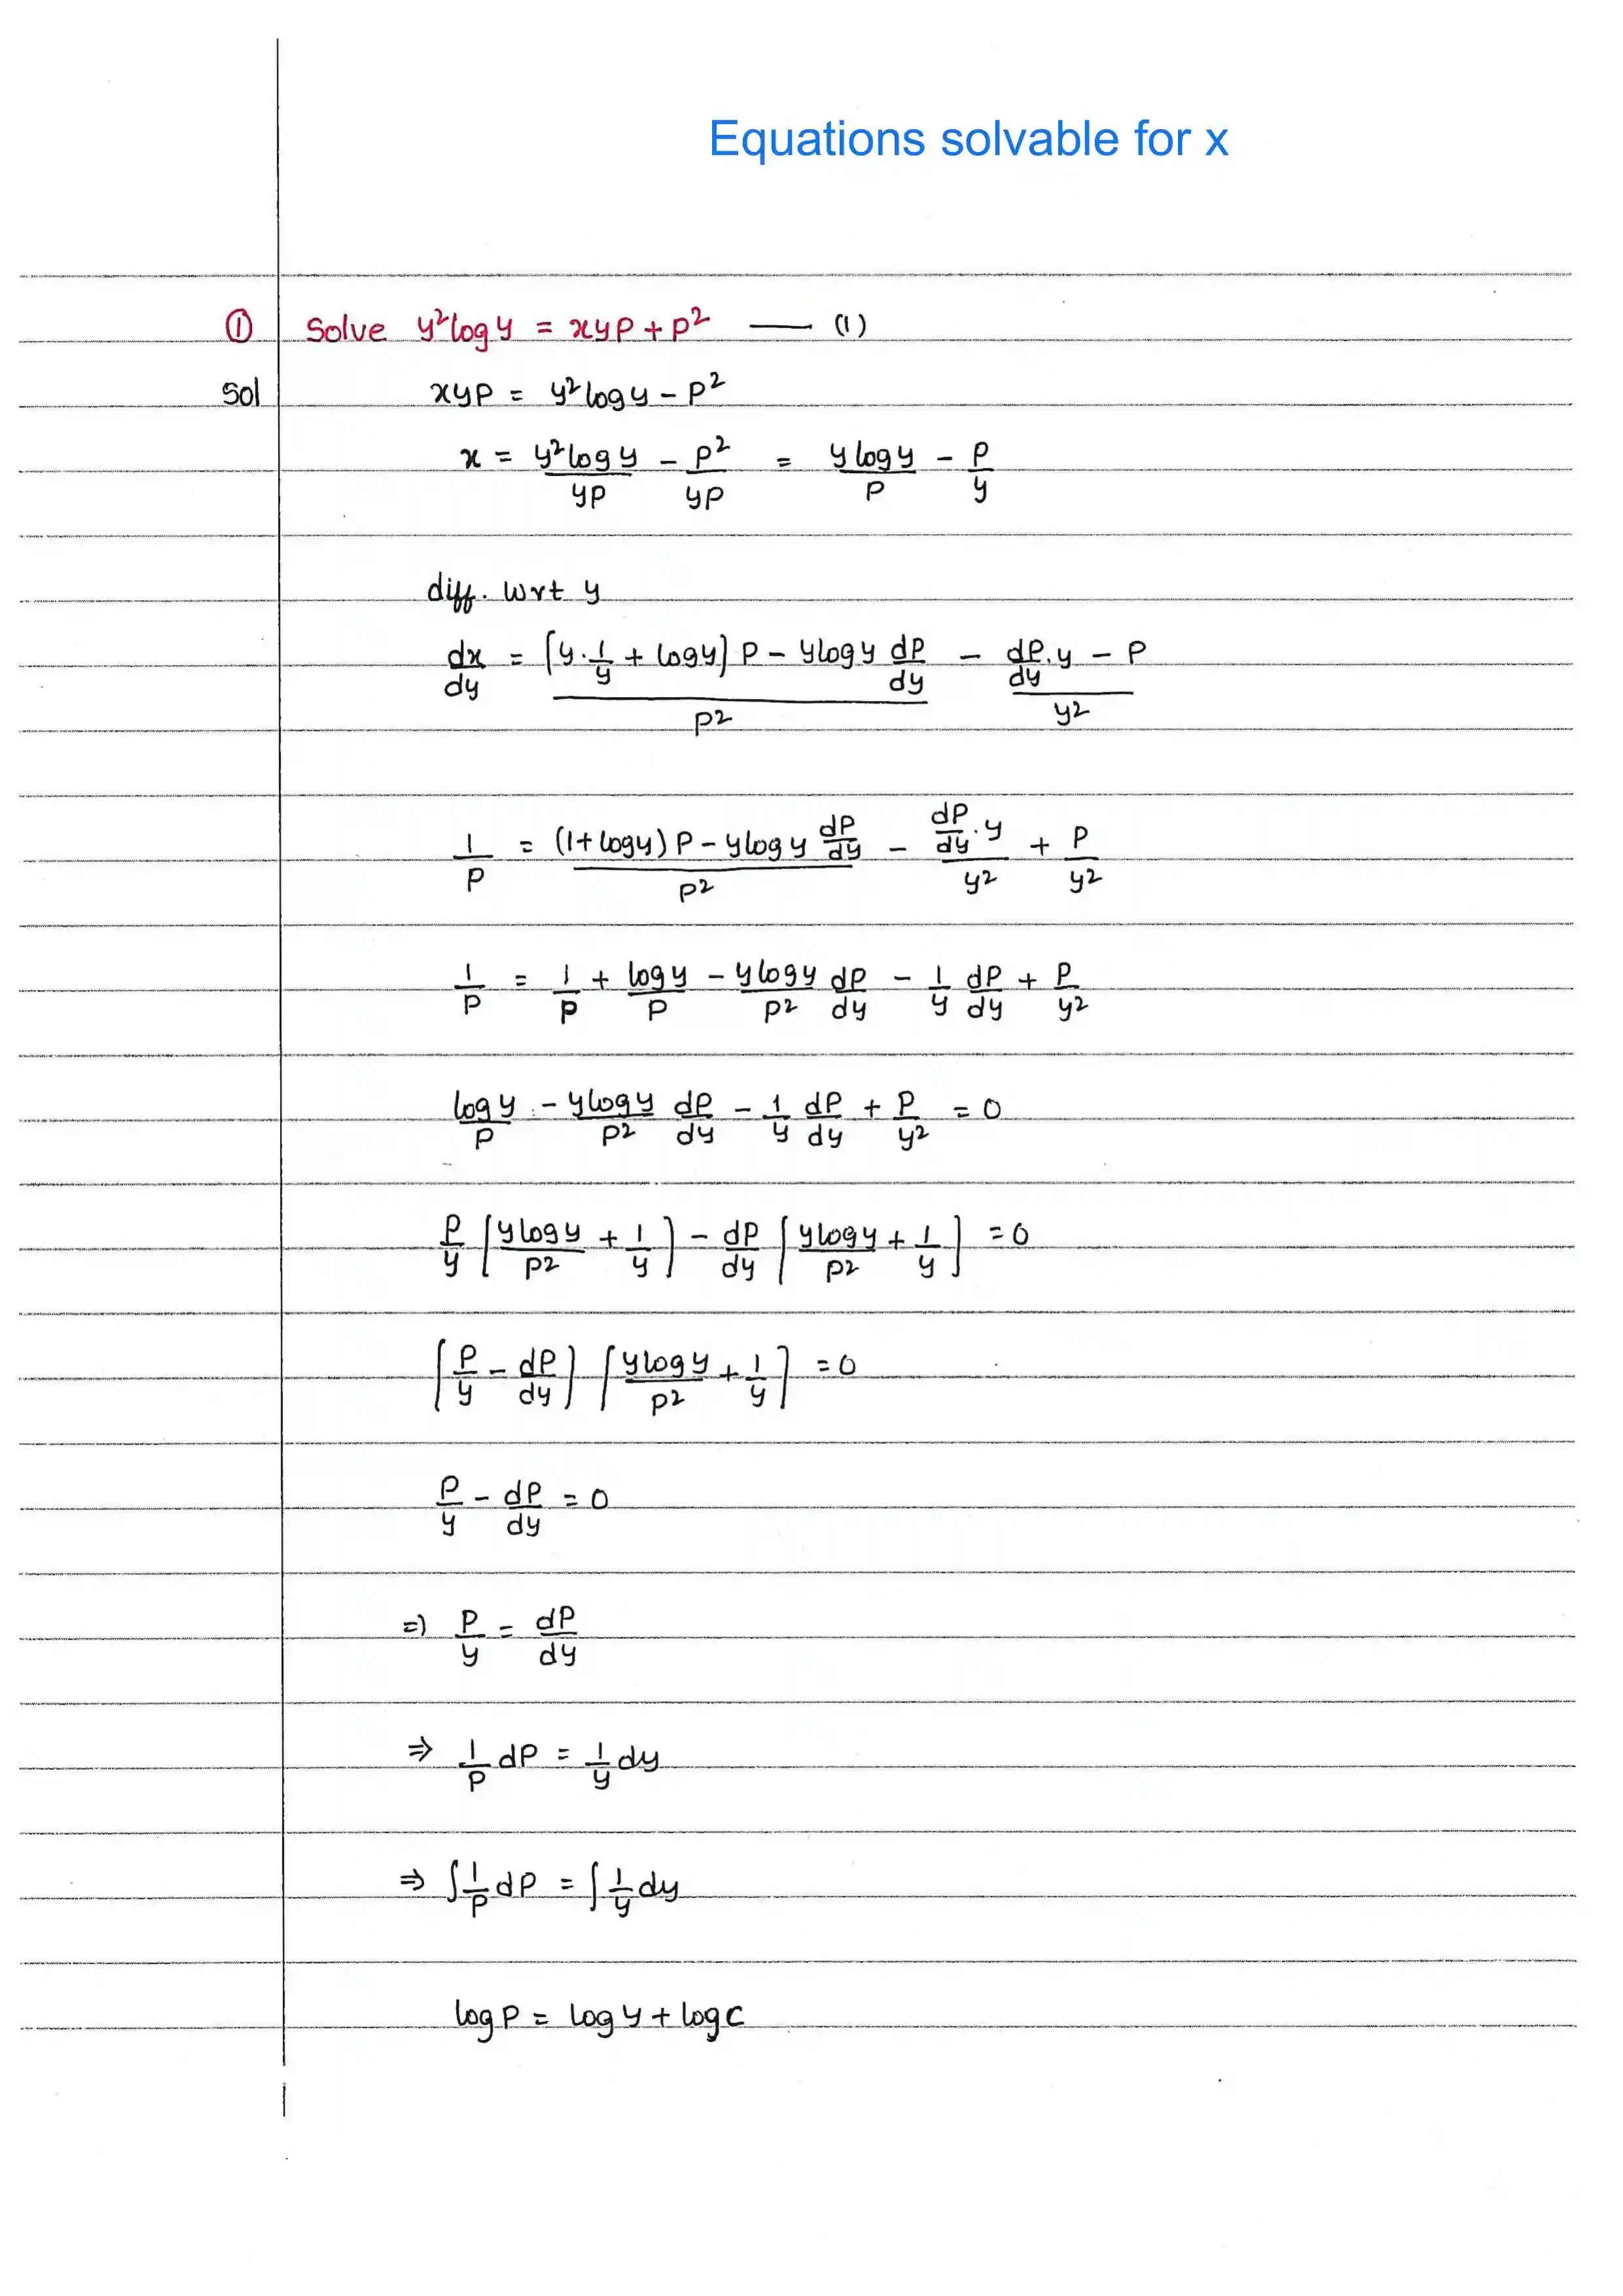 Equations solvable for x
① Solve y²logy = xyp + p² —— (1)
Sol xyp = y²logy - p²
x = y²logy/yp - p²/yp = ylogy/p - p/y
diff. wrt y
dx/dy = [(y·1/y + logy] p - ylogy dp/dy]/p² - [dp/dy·y - p]/y²
1/p = [(1+logy) p - ylogy dp/dy]/p² - [dp/dy·y]/y² + p/y²
1/p = 1/p + logy/p - ylogy/p² dp/dy - 1/y dp/dy + p/y²
logy/p - ylogy/p² dp/dy - 1/y dp/dy + p/y² = 0
p/y [ylogy/p² + 1/y] - dp/dy [ylogy/p² + 1/y] = 0
[p/y - dp/dy] [ylogy/p² + 1/y] = 0
p/y - dp/dy = 0
=) p/y = dp/dy
⇒ 1/p dp = 1/y dy
⇒ ∫1/p dp = ∫1/y dy
logp = logy + logc